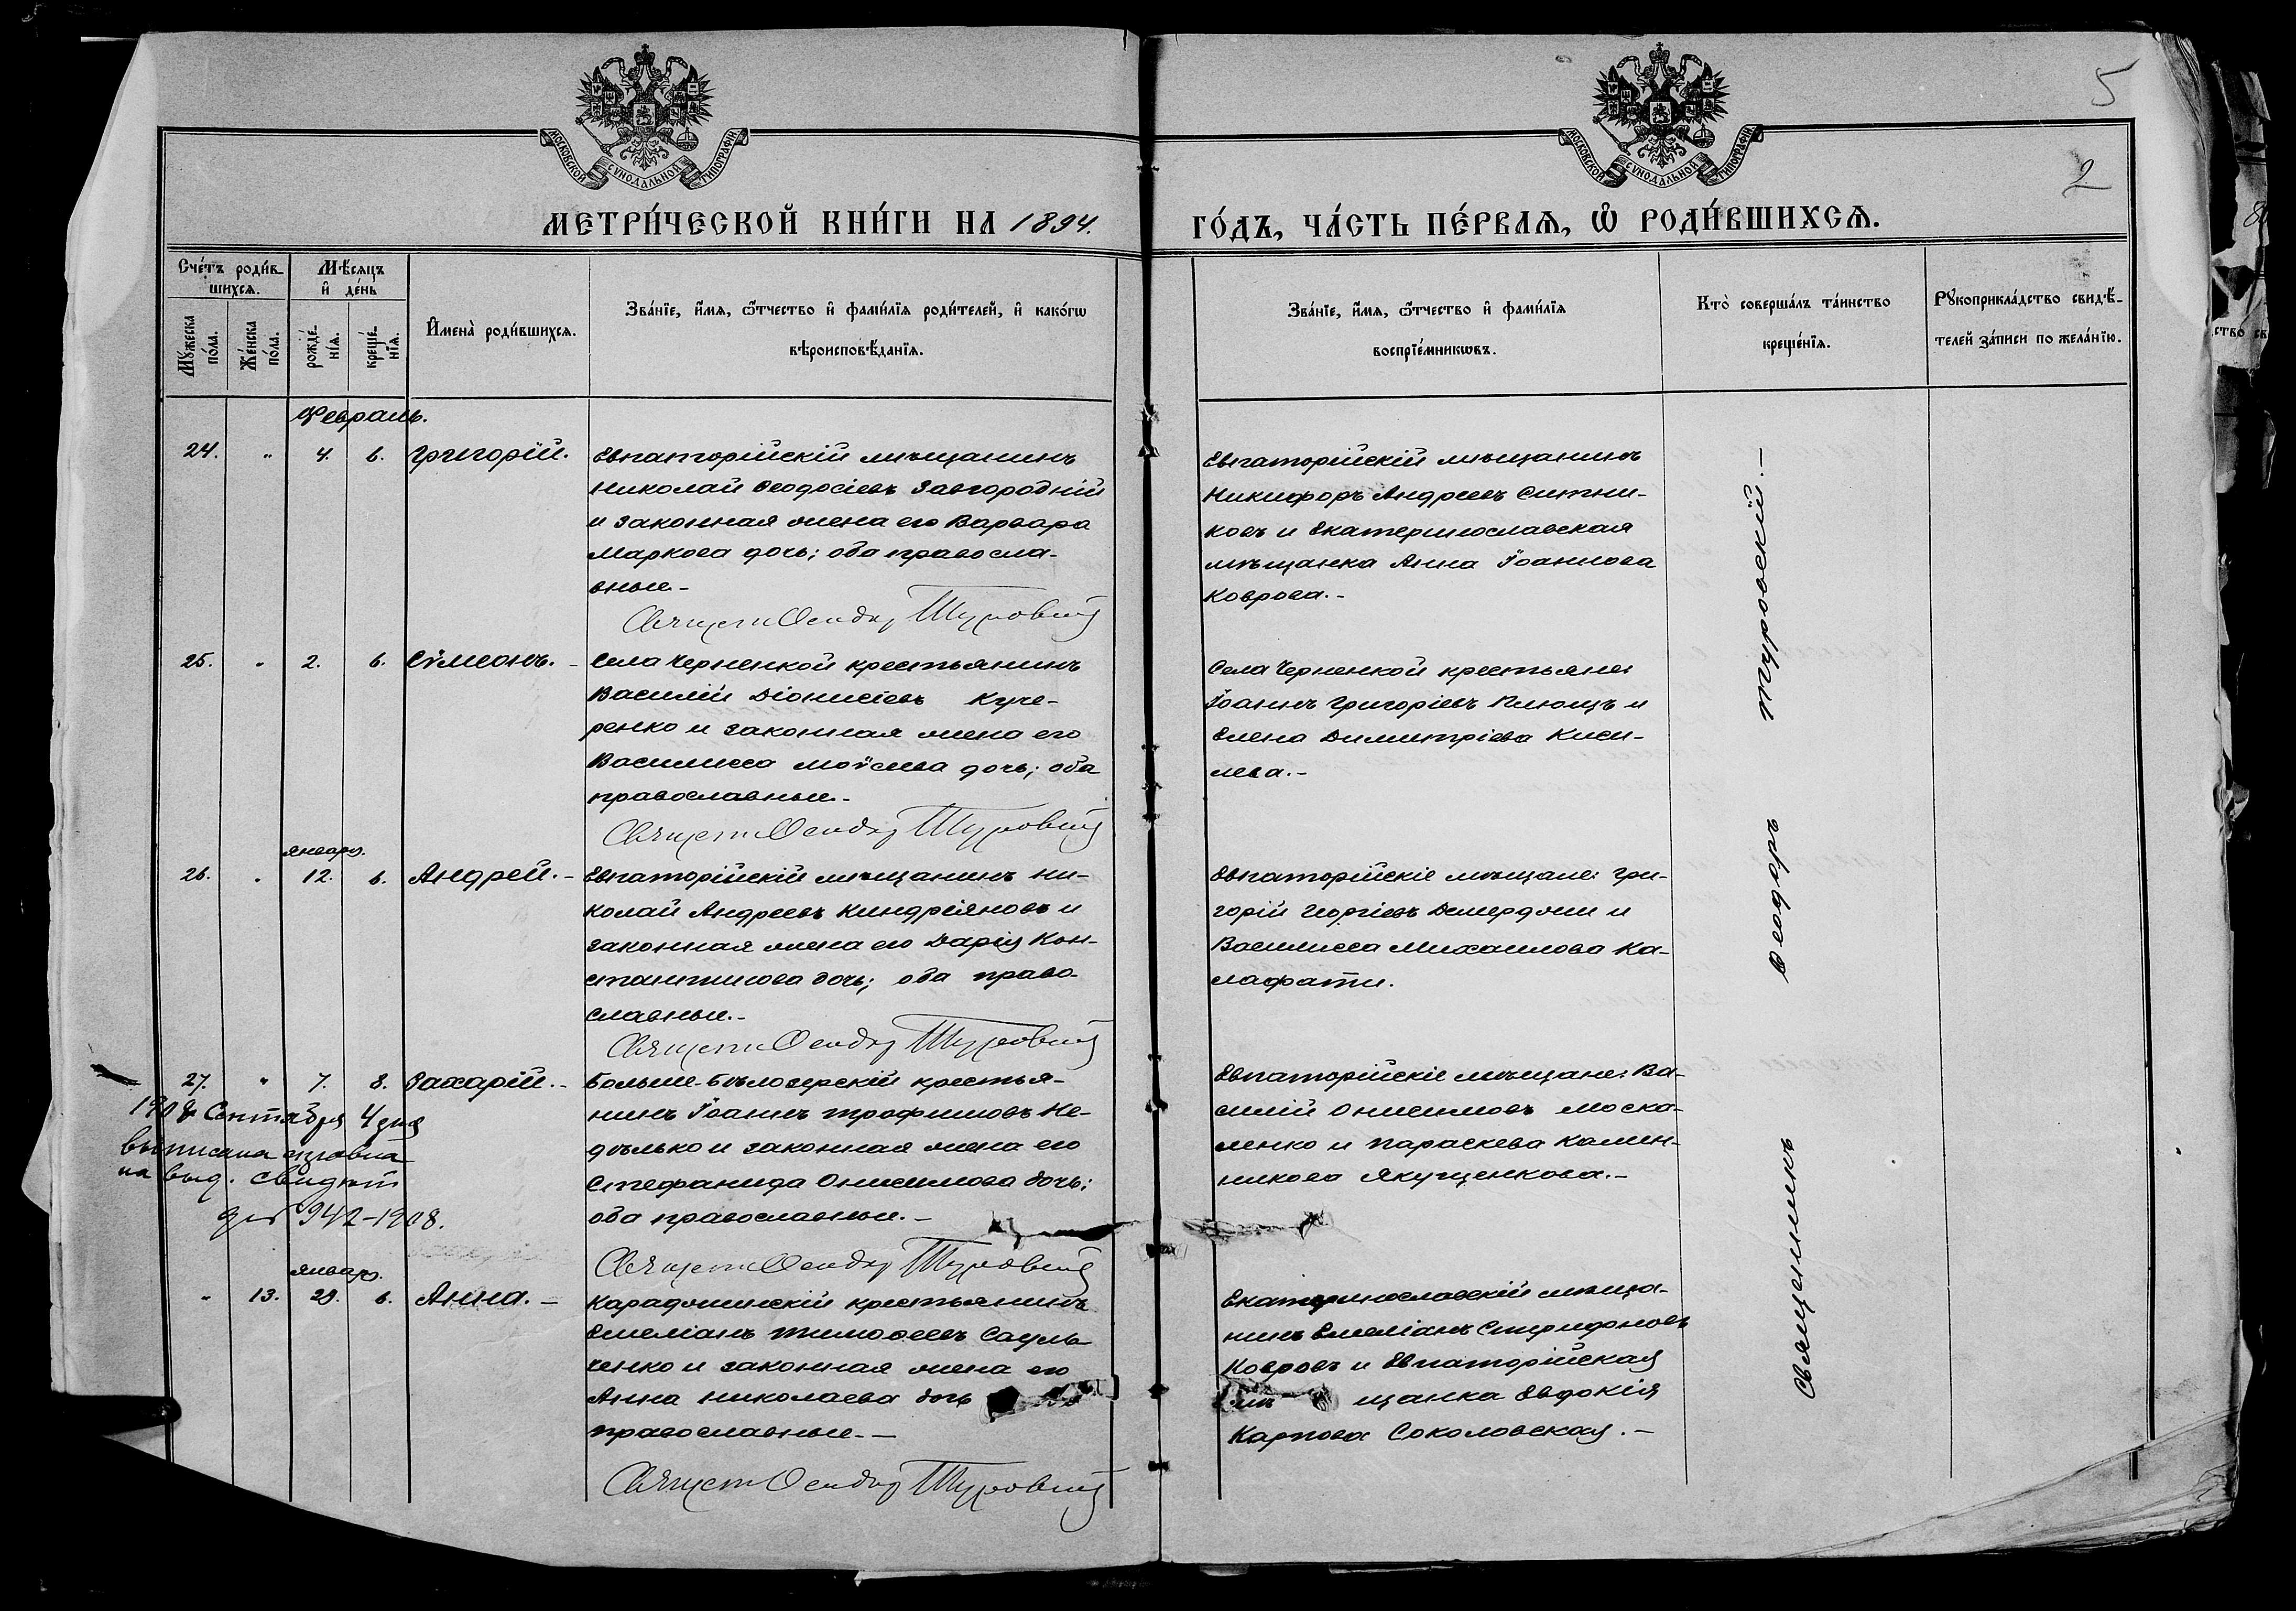 5
2
МОСКОВСКОЙ СѴНОДАЛЬНОЙ ТИПОГРАФІИ
МОСКОВСКОЙ СѴНОДАЛЬНОЙ ТИПОГРАФІИ
МЕТРИ́ЧЕСКОЙ КНИ́ГИ НА 1894.
ГО́ДЪ, ЧА́СТЬ ПЕ́РВАѦ, Ѽ РОДИ́ВШИХСѦ.
Сче́тъ роди́в-
шихсѧ.
Мꙋ́жеска
по́ла.
Же́нска
по́ла.
Мѣ́сѧцъ
и҆ де́нь
рожде́-
нїѧ.
креще́-
нїѧ.
И҆мена̀ роди́вшихсѧ.
Зва́нїе, и҆́мѧ, ѻ҆́тчество и҆ фами́лїѧ роди́телей, и҆ како́гѡ
вѣроисповѣ́данїѧ.
Зва́нїе, и҆́мѧ, ѻ҆́тчество и҆ фами́лїѧ
воспрїе́мникѡвъ.
Кто̀ соверша́лъ та́инство
креще́нїѧ.
Рꙋкоприкла́дство свидѣ́-
телей за́писи по жела́нїю.
Февраль.
24. " 4. 6. Григорій.
Евпаторійскій мѣщанинъ
Николай Ѳеодосіевъ Завгородній
и законная жена его Варвара
Маркова дочь; оба правосла-
вные.-
Священ Ѳеодор Туровскій
Евпаторійскій мѣщанинъ
Никифоръ Андреевъ Ситни-
ковъ и Екатеринославская
мѣщанка Анна Іоаннова
Коврова.-
25. " 2. 6. Сѷмеонъ.-
Села Черненкой крестьянинъ
Василій Діонисіевъ Куче-
ренко и законная жена его
Василисса Моѵсеева дочь; оба
православные.-
Священ Ѳеодор Туровскій
Села Черненкой крестьяне:
Іоаннъ Григоріевъ Плющъ и
Елена Димитріева Киси-
лева.-
январ.
26. " 12. 6. Андрей.-
Евпаторійскій мѣщанинъ Ни-
колай Андреевъ Киндріяновъ и
законная жена его Дарія Кон-
стантинова дочь; оба право-
славные.-
Священ Ѳеодор Туровскій
Евпаторійскіе мѣщане: Гри-
горій Георгіевъ Демерджи и
Василисса Михаилова Ка-
лафати.
27. " 7. 8. Захарій.-
1908 Сентября 4 дня
выписана справка
на выд. свидѣт
942-1908.
Больше-Бѣлозерскій крестья-
нинъ Іоаннъ Трофимовъ Не-
дѣлько и законная жена его
Стефанида Онисимова дочь;
оба православные.-
Священ Ѳеодор Туровскій
Евпаторійскіе мѣщане: Ва-
силій Онисимовъ Моска-
ленко и Параскева Калин-
никова Якущенкова.-
январ.
" 13. 6. Анна.-
Караджинскій крестьянинъ
Емеліанъ Тимоѳеевъ Сауль
ченко и законная жена его
Анна Николаева дочь
православные.-
Священ Ѳеодор Туровскій
Екатеринославскій мѣща-
нинъ Емеліанъ
Ковровъ и Евпаторійская
мѣщанка Евфокія
Карпова Соколовская.-
Священникъ Ѳеодоръ Туровскій.-